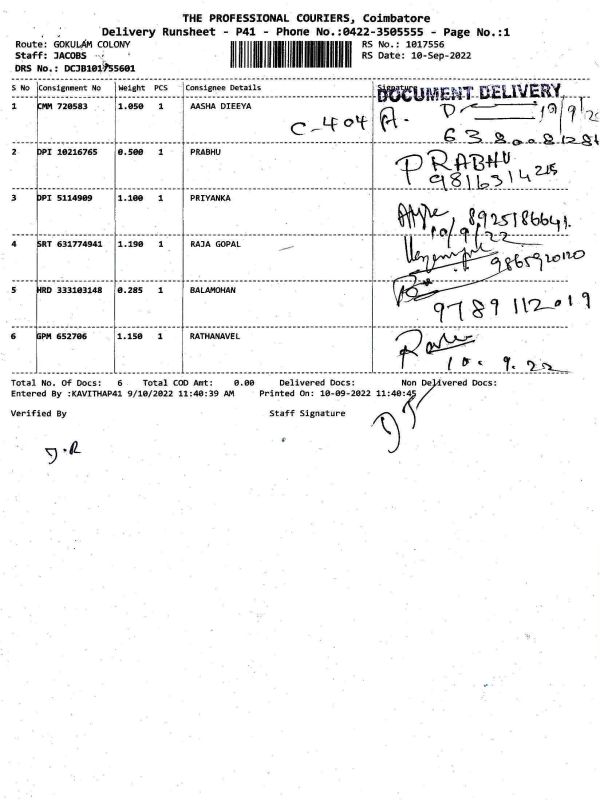 THE PROFESSIONAL COURIERS, Coimbatore
Delivery Runsheet - P41 - Phone No.:0422-3505555 - Page No.:1
Route: GOKULAM COLONY RS No.: 1017556
Staff: JACOBS RS Date: 10-Sep-2022
DRS No.: DCJB101755601
S No Consignment No Weight PCS Consignee Details Signature
DOCUMENT DELIVERY
1 CMM 720583 1.050 1 AASHA DIEEYA
C-404 A. D
2 DPI 10216765 0.500 1 PRABHU PRABHU
9816314215
3 DPI 5114909 1.100 1 PRIYANKA
8925186641.
10/9/22
4 SRT 631774941 1.190 1 RAJA GOPAL
9865920120
5 HRD 333103148 0.285 1 BALAMOHAN
9789112019
6 GPM 652706 1.150 1 RATHANAVEL
10. 9. 22
Total No. Of Docs: 6 Total COD Amt: 0.00 Delivered Docs: Non Delivered Docs:
Entered By :KAVITHAP41 9/10/2022 11:40:39 AM Printed On: 10-09-2022 11:40:45
Verified By Staff Signature